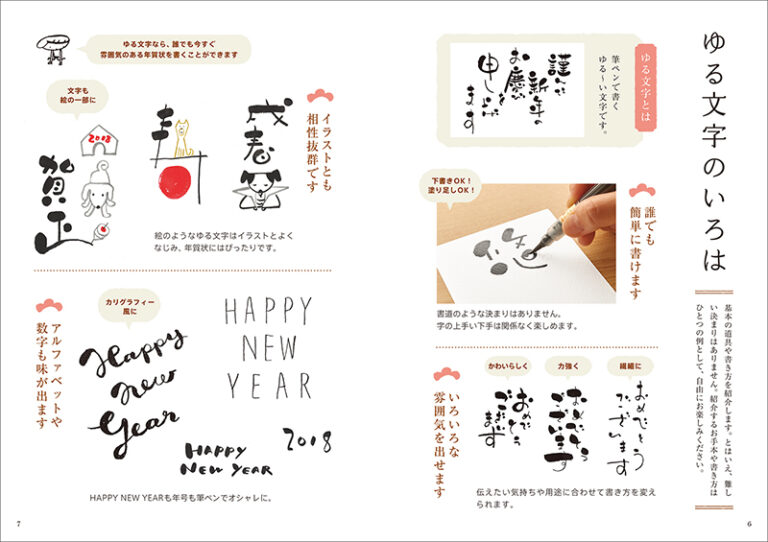 ゆる文字のいろは
基本の道具や書き方を紹介します。とはいえ、難し
い決まりはありません。紹介するお手本や書き方は
ひとつの例として、自由にお楽しみください。
ゆる文字とは
筆ペンで書く
ゆる〜い文字です。
謹んで
新年の
お慶びを
申し上げ
ます
誰でも
簡単に書けます
下書きOK!
塗り足しOK!
書道のような決まりはありません。
字の上手い下手は関係なく楽しめます。
いろいろな
雰囲気を出せます
繊細に
おめでとう
ございます
力強く
おめでとう
ございます
かわいらしく
おめでとう
ございます
伝えたい気持ちや用途に合わせて書き方を変え
られます。
6
ゆる文字なら、誰でも今すぐ
雰囲気のある年賀状を書くことができます
イラストとも
相性抜群です
文字も
絵の一部に
感春
寿
2018
賀正
絵のようなゆる文字はイラストとよく
なじみ、年賀状にはぴったりです。
アルファベットや
数字も味が出ます
カリグラフィー
風に
Happy
New
Year
HAPPY
NEW
YEAR
HAPPY
NEW YEAR
2018
HAPPY NEW YEARも年号も筆ペンでオシャレに。
7